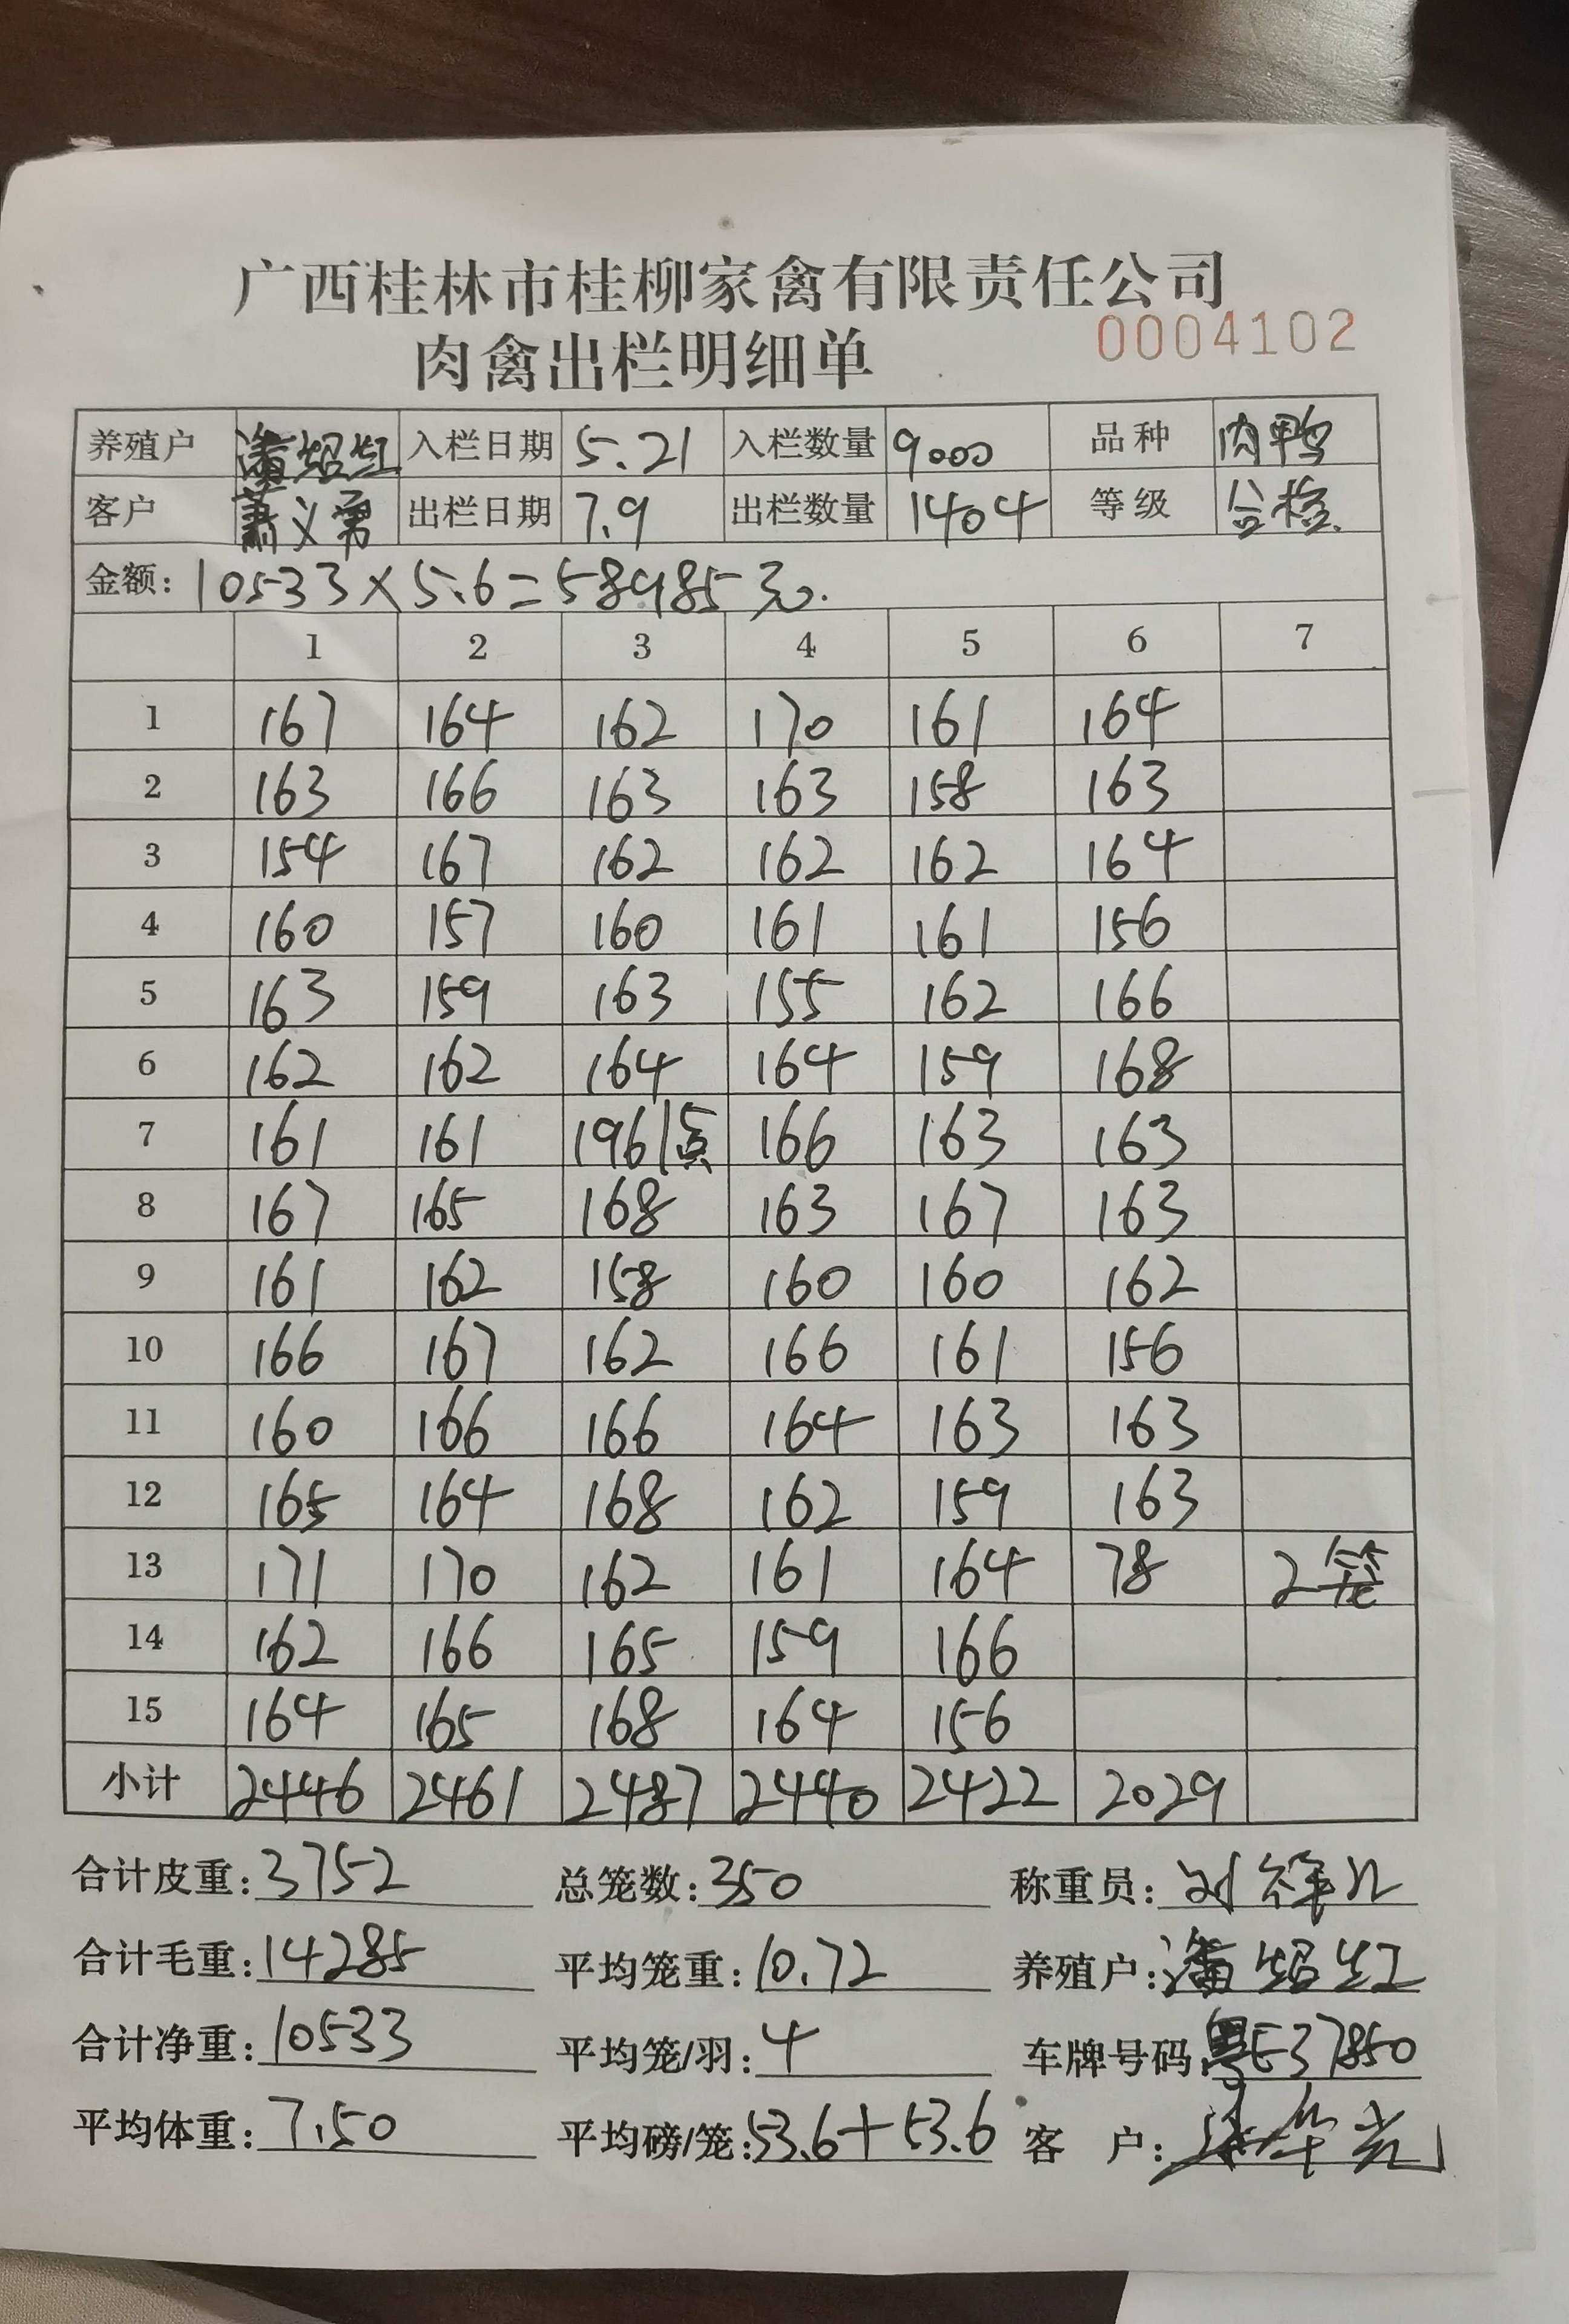 广西桂林市桂柳家禽有限责任公司
肉禽出栏明细单 0004102
养殖户 潘绍红 入栏日期 5.21 入栏数量 9000 品种 肉鸭
客户 萧义勇 出栏日期 7.9 出栏数量 1404 等级 合格
金额: 10533×5.6=58985元.
1 2 3 4 5 6 7
1 167 164 162 170 161 164
2 163 166 163 163 158 163
3 154 167 162 162 162 164
4 160 157 160 161 161 156
5 163 159 163 155 162 166
6 162 162 164 164 159 168
7 161 161 196 166 163 163
8 167 165 168 163 167 163
9 161 162 158 160 160 162
10 166 167 162 166 161 156
11 160 166 166 164 163 163
12 165 164 168 162 159 163
13 171 170 162 161 164 78 2笼
14 162 166 165 159 166
15 164 165 168 164 156
小计 2446 2461 2487 2440 2422 2029
合计皮重: 3752 总笼数: 350 称重员:
合计毛重: 14285 平均笼重: 10.72 养殖户: 潘绍红
合计净重: 10533 平均笼/羽: 4 车牌号码: 粤E37850
平均体重: 7.50 平均磅/笼: 53.6+53.6 客 户: